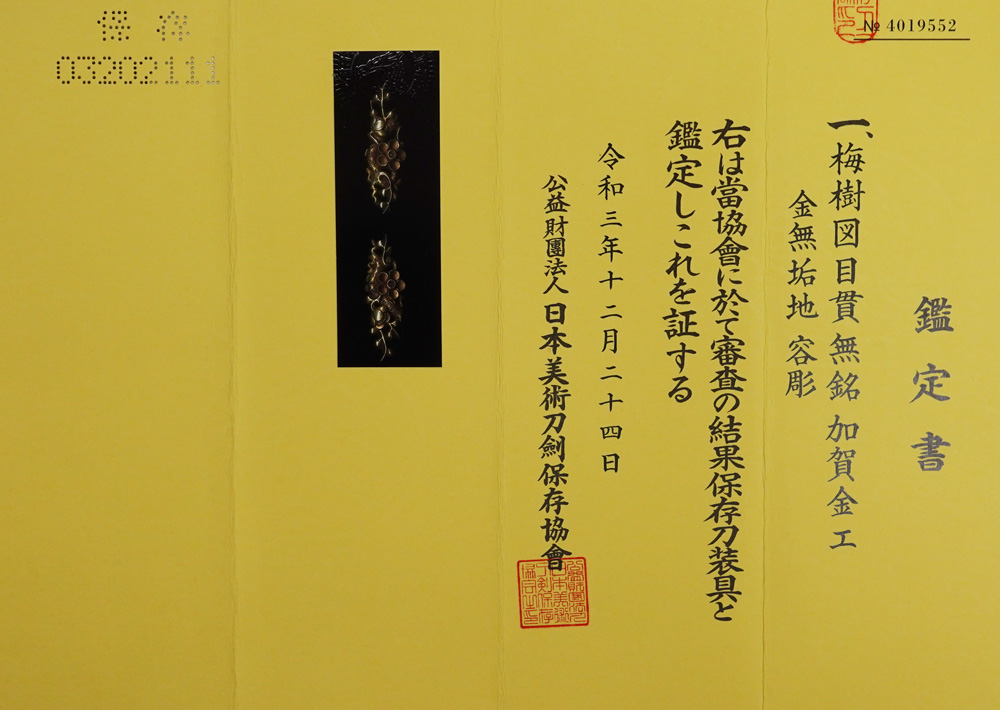 № 4019552
鑑定書
一、梅樹図目貫 無銘 加賀金工
金無垢地 容彫
右は當協會に於て審査の結果保存刀装具と
鑑定しこれを証する
令和三年十二月二十四日
公益財團法人 日本美術刀劍保存協會
保存
03202111